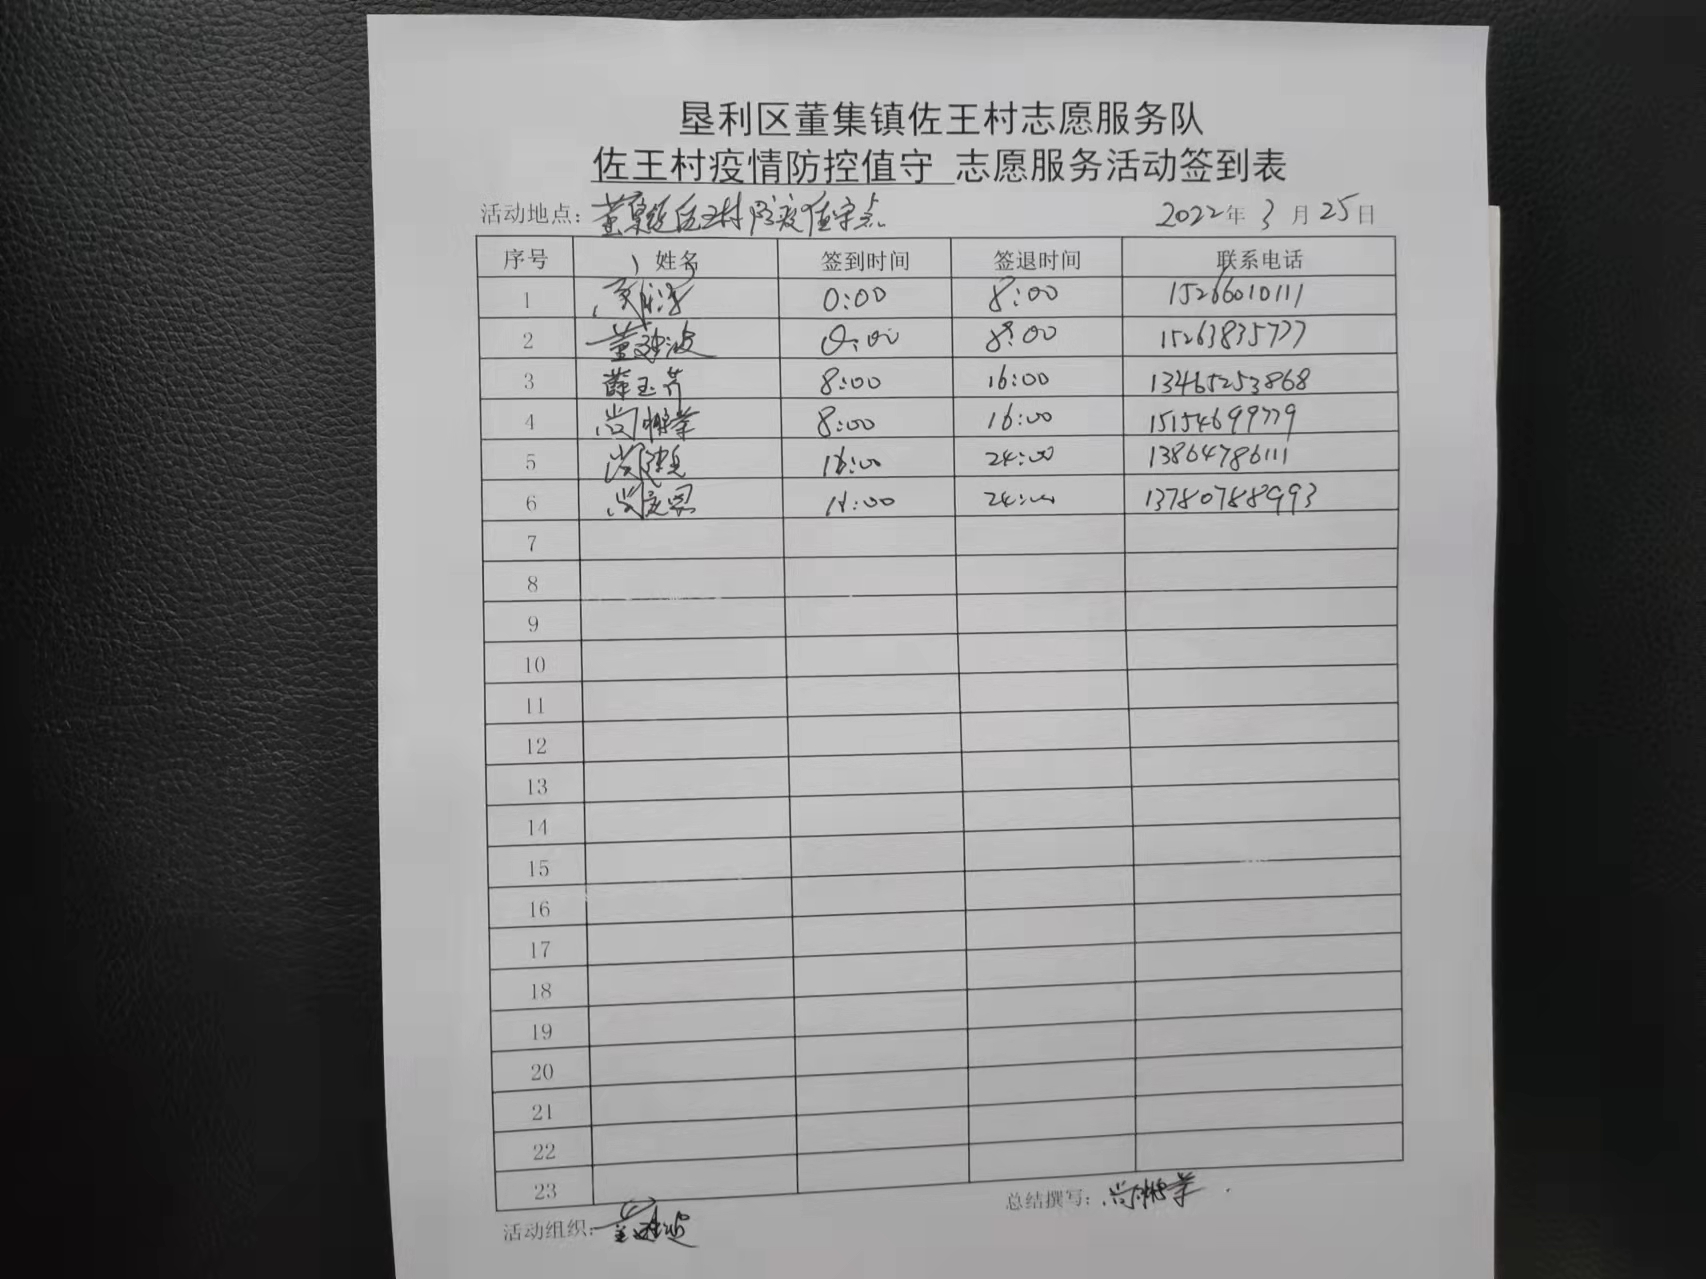 垦利区董集镇佐王村志愿服务队
佐王村疫情防控值守 志愿服务活动签到表
活动地点：董集镇佐王村防疫值守点 2022年3月25日
序号 姓名 签到时间 签退时间 联系电话
1 0:00 8:00 15266010111
2 董建波 0:00 8:00 15263835777
3 薛玉芹 8:00 16:00 13465253868
4 尚 8:00 16:00 15154699779
5 尚建 16:00 24:00 13864786111
6 尚 24:00 137807888993
7
8
9
10
11
12
13
14
15
16
17
18
19
20
21
22
23
活动组织：董建波 总结撰写：尚